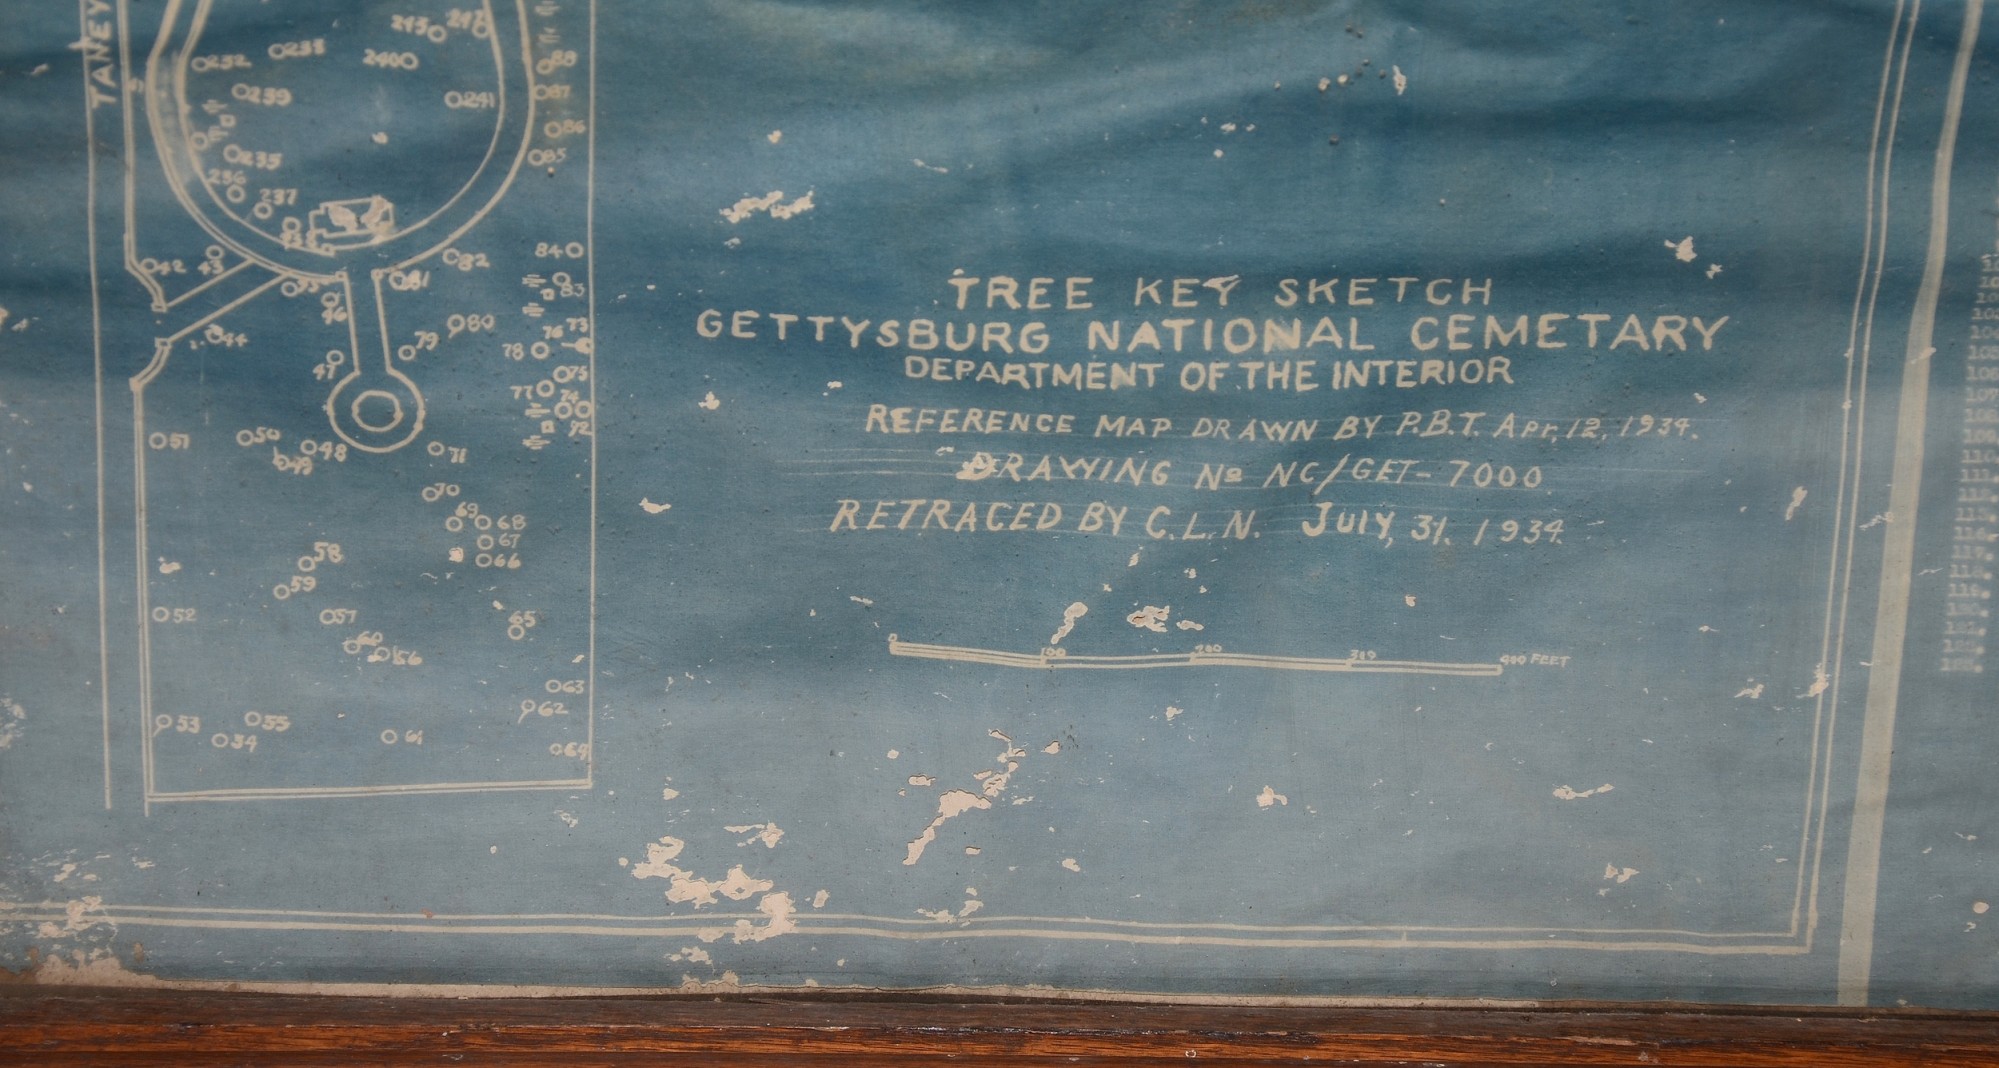 TANEY
243 242
232 238 2400 88
239 241 87
86
235 85
236
237
84
42 43 82
81 83
46
44 79 80 76 73
78
47 75
77 74
72
51 50 48 71
49
70
69 68
67
58 66
59
52 57 65
60 56
63
53 55 62
54 61 64
TREE KEY SKETCH
GETTYSBURG NATIONAL CEMETARY
DEPARTMENT OF THE INTERIOR
REFERENCE MAP DRAWN BY P.B.T. Apr, 12, 1934.
DRAWING No NC/GET-7000
RETRACED BY C.L.N. July, 31, 1934.
0 100 200 300 400 FEET